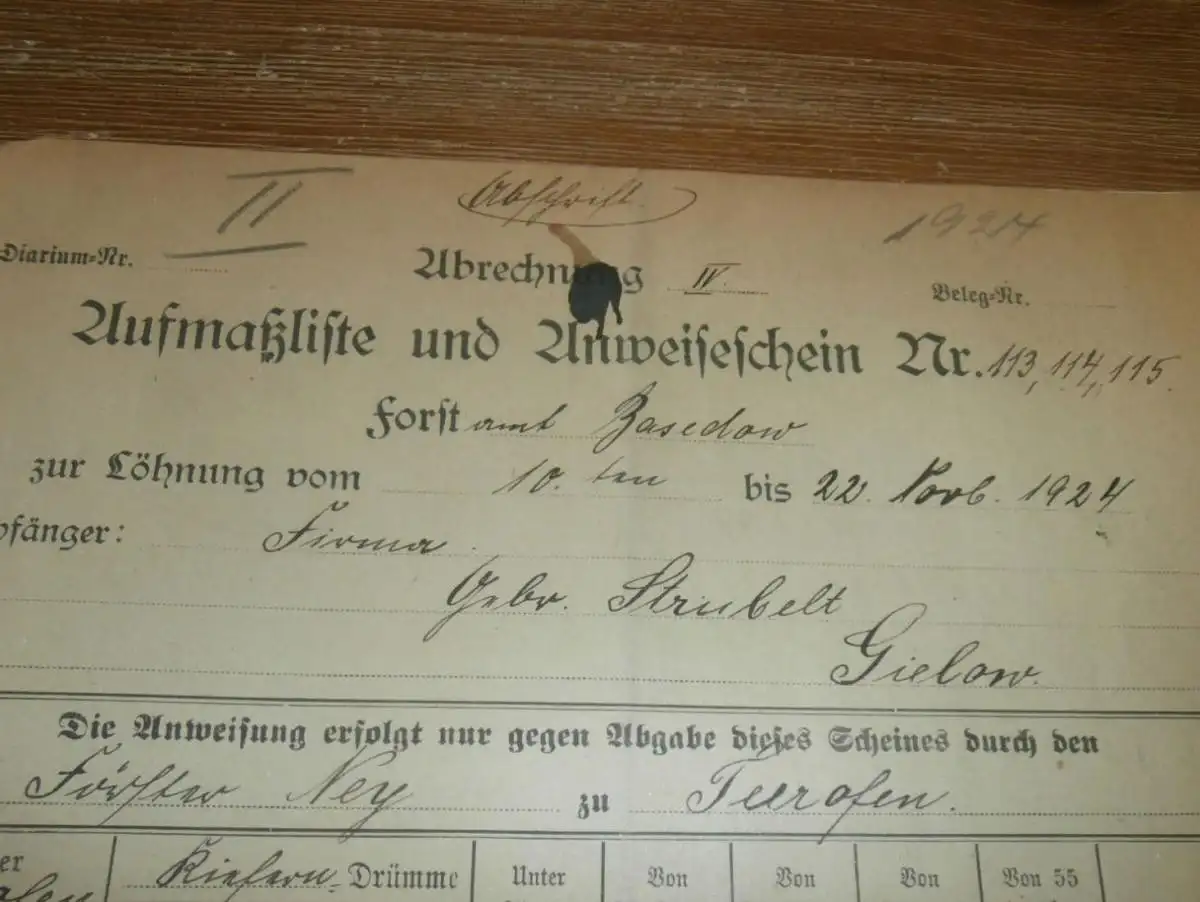 II Abschrift 1924
Diarium-Nr. Abrechnung IV. Beleg-Nr.
Aufmaßliste und Anweiseschein Nr. 113, 114, 115
Forstamt Basedow
zur Löhnung vom 10. ten bis 22. Novb. 1924
pfänger: Firma
Gebr. Strubelt
Gielow.
Die Anweisung erfolgt nur gegen Abgabe dieses Scheines durch den
Förster Ney zu Teerofen.
er Kiefern-Drümme Unter Von Von Von Von 55